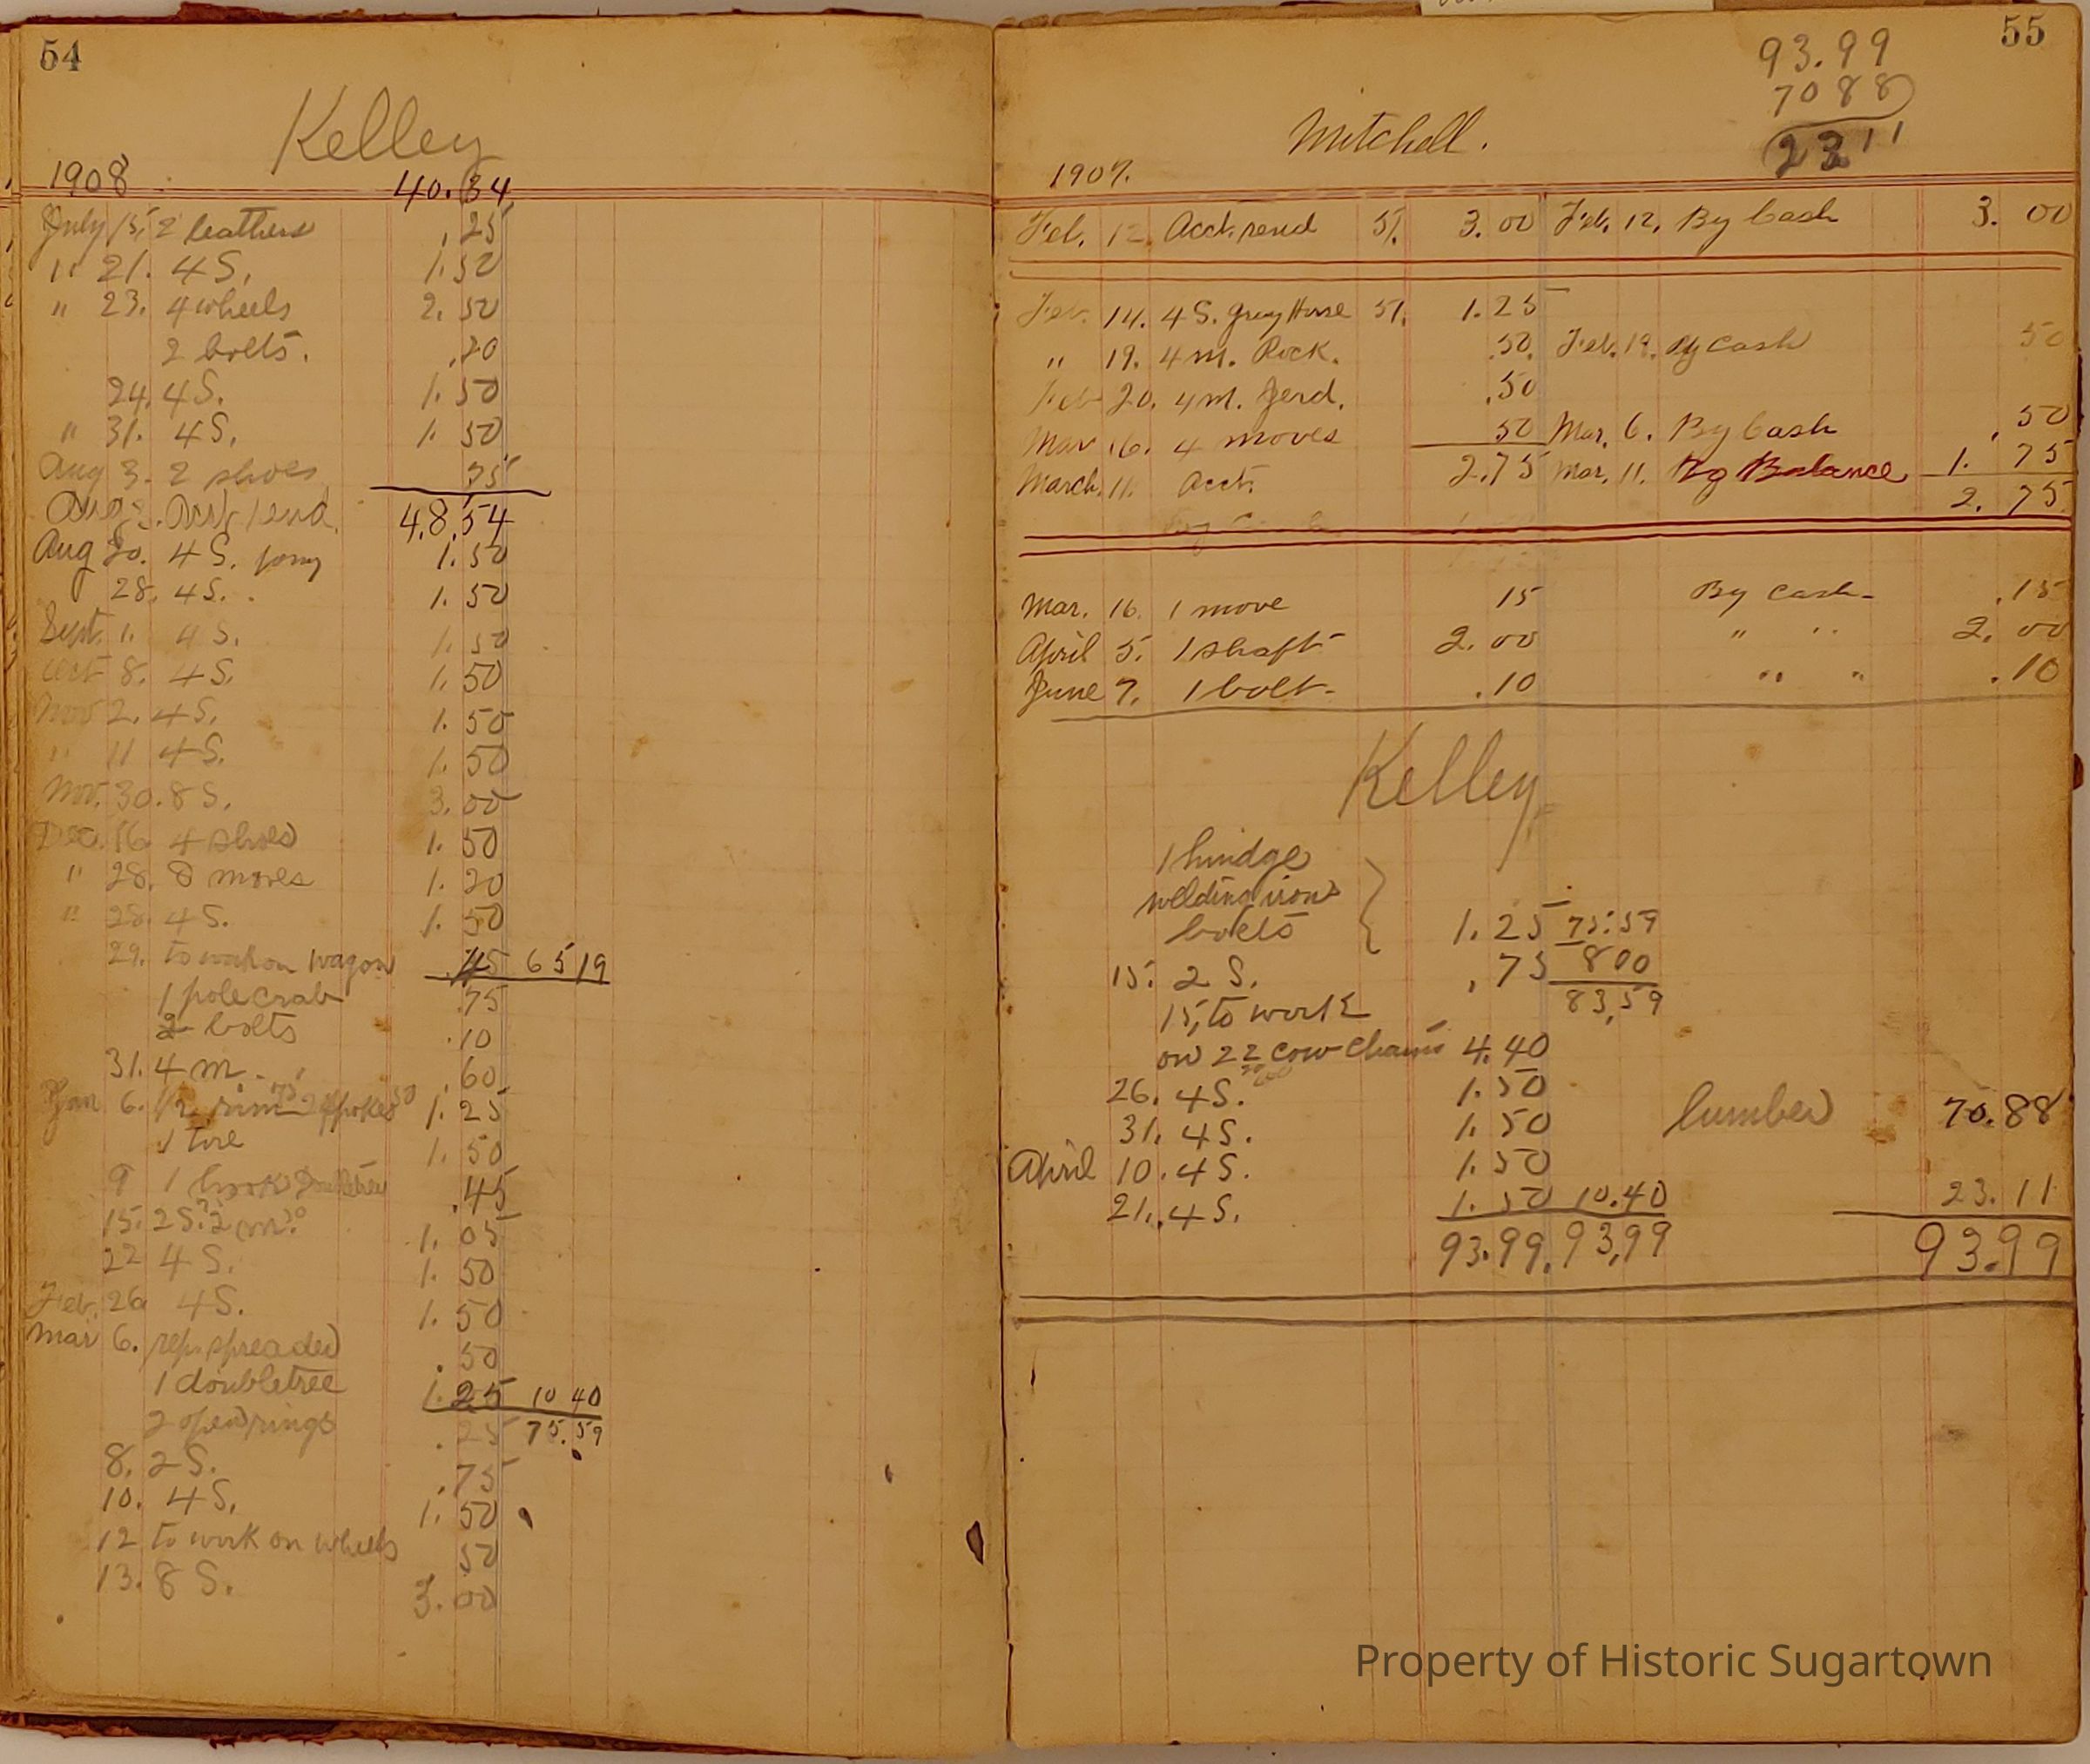 54
Kelley
1908 40.34
July 15, 2 leathers .25
" 21. 4 S. 1.50
" 23. 4 wheels 2.50
2 bolts. .20
24. 4 S. 1.50
" 31. 4 S. 1.50
Aug 3. 2 shoes 75
Aug 48.54
Aug 20. 4 S. pony 1.50
28. 4 S. 1.50
Sept. 1. 4 S. 1.50
Oct 8. 4 S. 1.50
Nov 2. 4 S. 1.50
" 11 4 S. 1.50
Nov. 30. 8 S. 3.00
Dec. 16 4 shoes 1.50
" 28. 8 moves 1.20
" 28. 4 S. 1.50
29. to work on wagon .45 65 19
1 pole crab .75
2 bolts .10
31. 4 m. .60
Jan 6. 1/2 rim 75 2 spokes 50 1.25
1 tire 1.50
9 1 hook .45
15. 2 S. 2 m. 1.05
22 4 S. 1.50
Feb. 26 4 S. 1.50
Mar 6. rep. spreader .50
1 doubletree 1.25 10 40
2 open rings .25 75.59
8. 2 S. .75
10. 4 S. 1.50
12 to work on wheels 50
13. 8 S. 3.00
55
93.99
70 88
23 11
Mitchell.
1909.
Feb. 12. Acct. rend 51. 3.00 Feb. 12. By Cash 3.00
Feb. 14. 4 S. Gray Horse 51. 1.25
" 19. 4 m. Rock. .50. Feb. 19. By Cash 50
Feb 20. 4 m. Ferd. .50
Mar 6. 4 moves 50 Mar. 6. By Cash .50
March. 11. Acct. 2.75 Mar. 11. By Balance 1.75
2.75
Mar. 16. 1 move 15 By Cash .15
April 5. 1 shaft 2.00 " " 2.00
June 7. 1 bolt .10 " " .10
Kelley
1 hindge
welding irons
bolts 1.25 75.59
15. 2 S. .75 800
83,59
15, to work
on 22 cow chains 4.40
26. 4 S. 1.50
31. 4 S. 1.50 lumber 70.88
April 10. 4 S. 1.50
21. 4 S. 1.50 10.40 23.11
93.99. 93,99 93.99
Property of Historic Sugartown